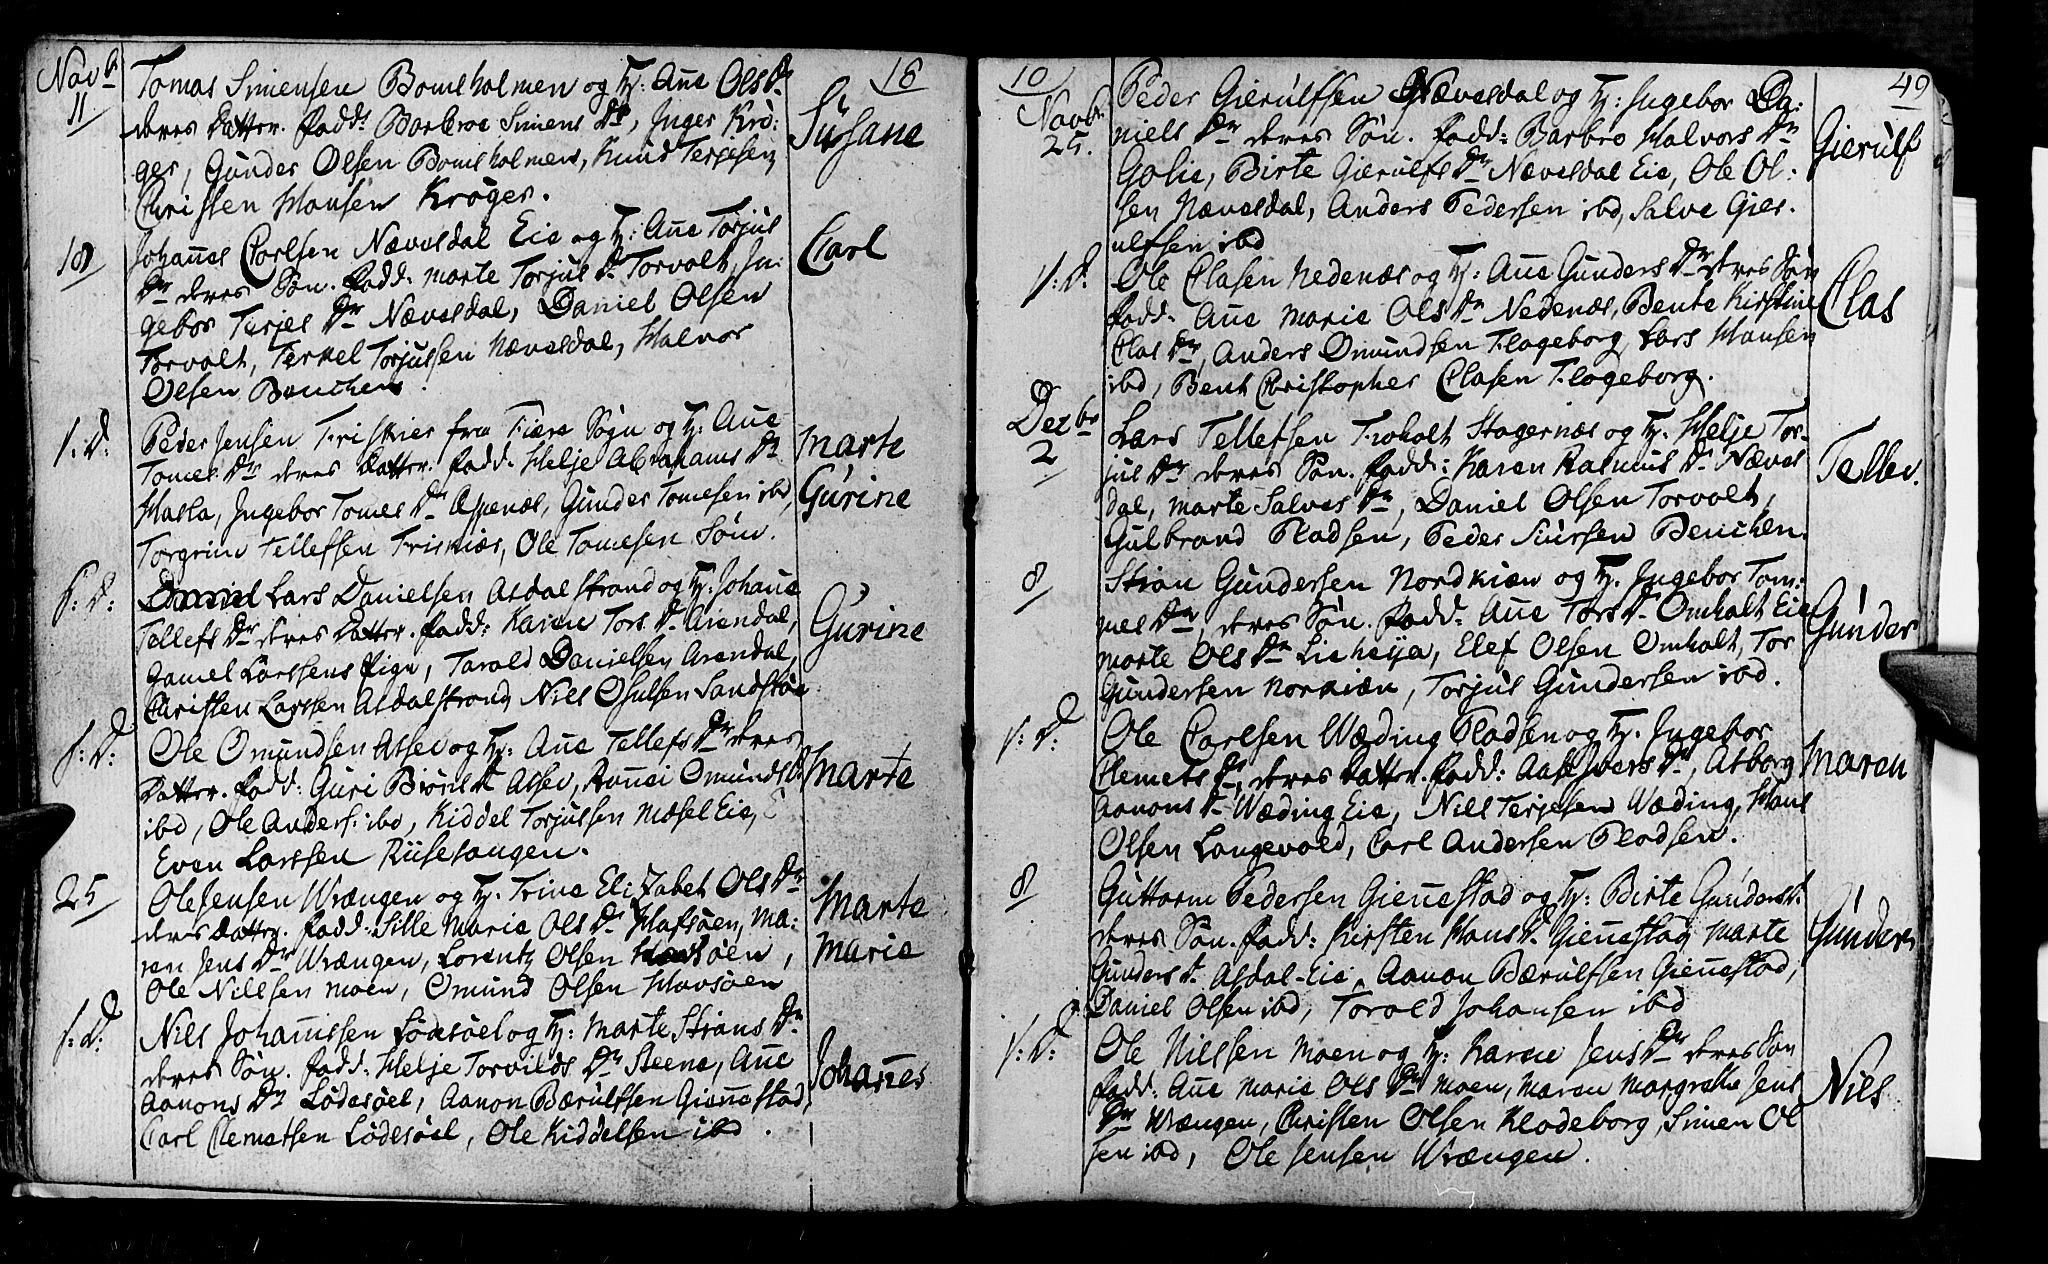 Novb
11
16
Tomas Simensen Bomsholmen og H: Añe Olsdr
deres Datter. fadd: Barbroe Simens Dr, Inger Krö-
ger, Gunder Olsen Bomsholmen, Knud Terjesen,
Christen Hansen Krøger.
Susane
18
Johañes Carlsen Nævesdal Eie og H: Añe Torjus
Dr deres Søn. fadd: Marte Torjus Dr Torvolt, In-
gebor Terjes Dr Nævesdal, Daniel Olsen
Torvolt, Terkel Torjussen Nævesdal, Halvor
Olsen Benchen.
Carl
s: D:
Peder Jensen Frisknes fra Fiære Sogn og H: Añe
Tomes Dr deres Datter. fadd: Helje Abrahams Dr
Hasla, Ingebor Tomes Dr Espenæs, Gunder Tomesen ibd,
Torgrim Tellefsen Frisknæs, Ole Tomesen Sönn.
Marte
Gurine
s: D:
Lars Danielsen Asdalstrand og H: Johañe
Tellefs Dr deres Datter. fadd: Karen Tors Dr Arendal,
Gamel Larssens Pige, Tarald Danielsen Arendal,
Christen Larssen Asdalstrand, Niels Osulsen Sandstøe
Gurine
s: D:
Ole Omundsen Assev og H: Añe Tellefs Dr deres
Datter. fadd: Guri Biörns Dr Assev, Roñei Omunds Dr
ibd, Ole Anders: ibd, Kiddel Torjussen Mosel Eie,
Even Larssen Riisesangen.
Marte
25
Ole Jensen Wrængen og H: Trine Elizabet Ols Dr
deres Datter. fadd: Sille Marie Ols Dr Hafsöen, Ma-
ren Jens Dr Wrængen, Lorentz Olsen Havsöen,
Ole Nilssen Moen, Omund Olsen Havsöen
Marte
Marie
s: D:
Nils Johañissen Lödesöel og H: Marte Stians Dr
deres Søn. fadd: Helje Torvilds Dr Steene, Añe
Aanons Dr Lødesöel, Aanon Bærulfsen Gieñestad,
Carl Clemetsen Lödesöel, Ole Kiddelsen ibd.
Johañes
10
49
Novb.
25.
Peder Gierulfsen Nævesdal og H: Ingebor Da-
niels Dr deres Søn. fadd: Barbro Halvors Dr
Golie, Birte Gierulfs Dr Nævesdal Eie, Ole Ol-
sen Nævesdal, Anders Pedersen ibd, Salve Gier-
ulfsen ibd
Gierulf
s: D.
Ole Clasen Nedenæs og H: Añe Gunders Dr deres Søn
fadd: Añe Marie Ols Dr Nedenæs, Bente Kirstine
Clas Dr, Anders Omundsen Flageborg, Lars Hansen
ibd, Bent Christopher Clasen Flageborg.
Clas
Dezbr
2
Lars Tellefsen Froholt Stagernæs og H: Helje Tor-
jus Dr deres Søn. fadd: Karen Rasmus Dr Næves
dal, Marte Salves Dr, Daniel Olsen Torvolt,
Gulbrand Pladsen, Peder Siursen Benchen.
Tellev.
8
Stian Gundersen Nordkiæn og H. Ingebor Tom-
mes Dr, deres Søn. fadd: Añe Tors Dr Omholt Eie
Marte Ols Dr Lieheija, Elef Olsen Omholt, Tor
Gundersen Norkiæn, Torjus Gundersen ibd.
Gunder
s: D:
Ole Carlsen Wæding Pladsen og H. Ingebor
Clemets Dr, deres Datter. fadd: Aase Ivers Dr, Asborg
Aanons Dr Wæding Eie, Niels Terjesen Wæding, Hans
Olsen Langevold, Carl Andersen Pladsen.
Maren
8
Guttorm Pedersen Gieñestad og H: Birte Gunders Dr.
deres Søn. fadd: Kirsten Hans Dr. Gieñestad, Marte
Gunders Dr. Asdal-Eie, Aanon Bærulfsen Gieñestad,
Daniel Olsen ibd, Torald Johansen ibd
Gunder
s: D:
Ole Nilssen Moen og H: Karen Jens Dr deres Søn
fadd: Añe Marie Ols Dr Moen, Maren Margrethe Jens
Dr Wrængen, Christen Olsen Klodeborg, Simen Ol
sen ibd, Ole Jensen Wrængen.
Niels